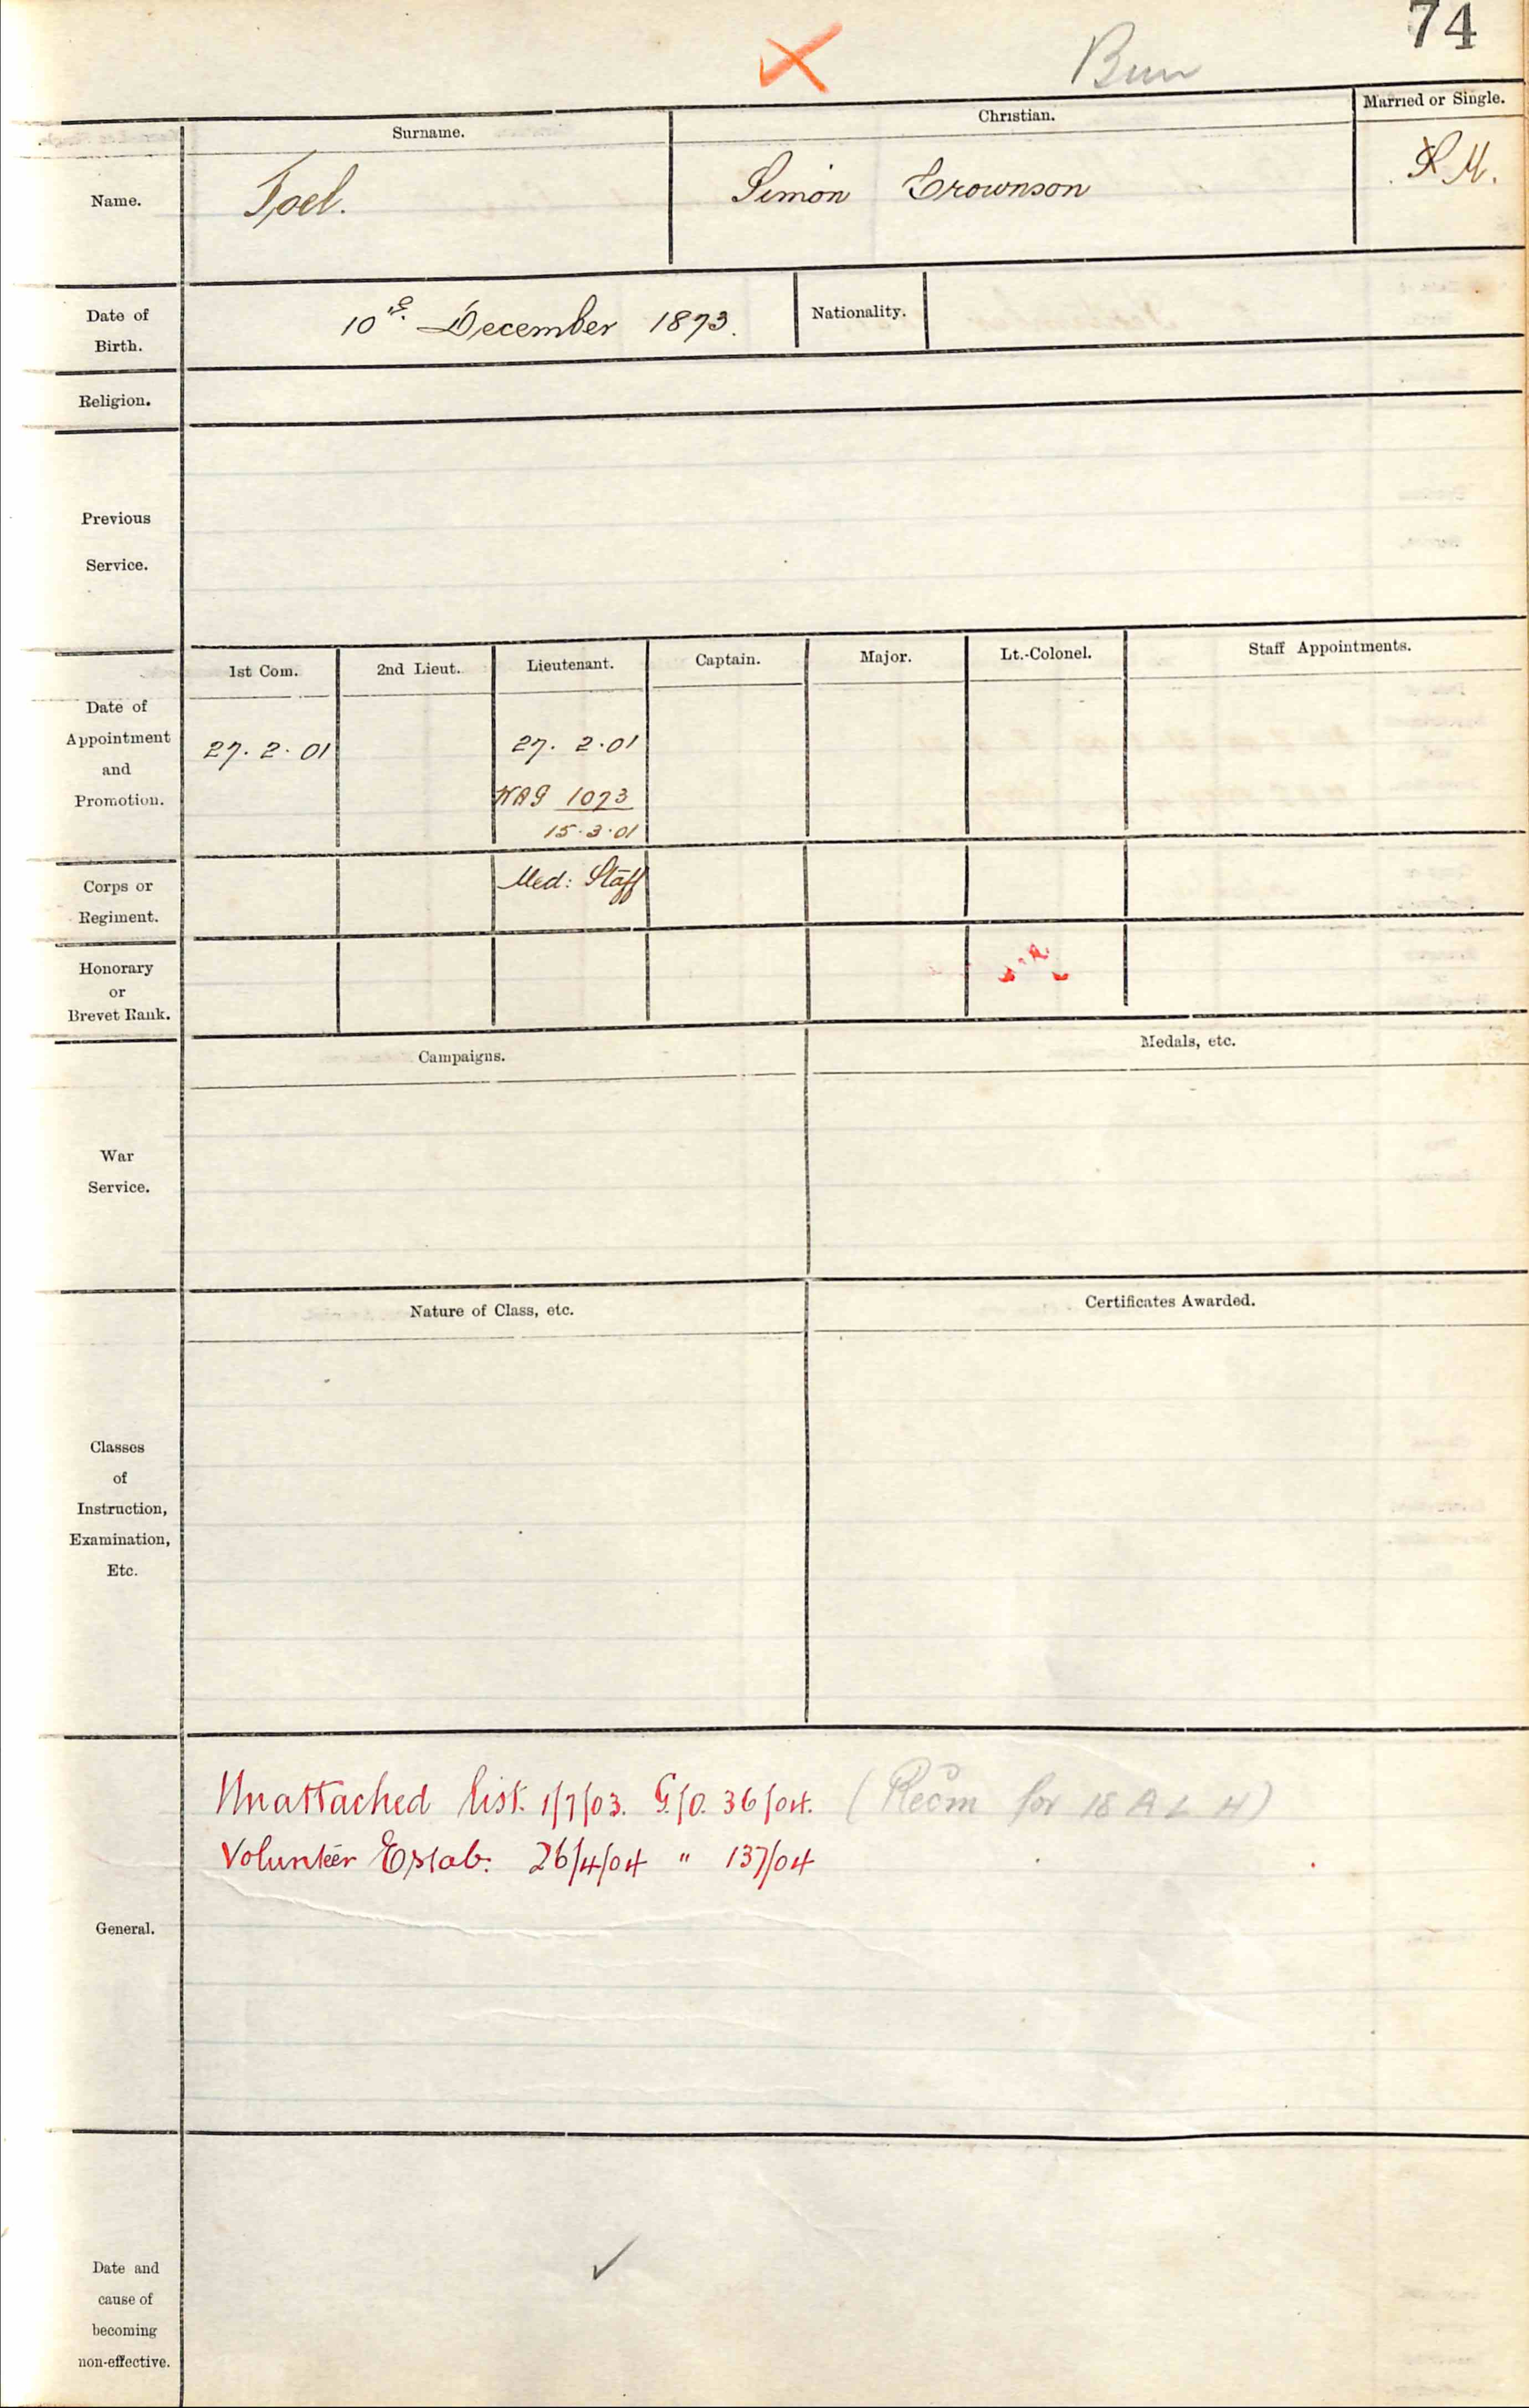 74
Bun
Surname. Christian. Married or Single.
Name. Joel. Simon Crownson S M.
Date of Birth. 10th. December 1873. Nationality.
Religion.
Previous Service.
1st Com. 2nd Lieut. Lieutenant. Captain. Major. Lt.-Colonel. Staff Appointments.
Date of Appointment and Promotion. 27. 2. 01 27. 2. 01
1073
15. 3. 01
Corps or Regiment. Med: Staff
Honorary or Brevet Rank.
Campaigns. Medals, etc.
War Service.
Nature of Class, etc. Certificates Awarded.
Classes of Instruction, Examination, Etc.
Unattached list. 1/7/03. G/O. 36/04. (Recm for 18 A L H)
Volunteer Estab. 26/4/04 " 137/04
General.
Date and cause of becoming non-effective.